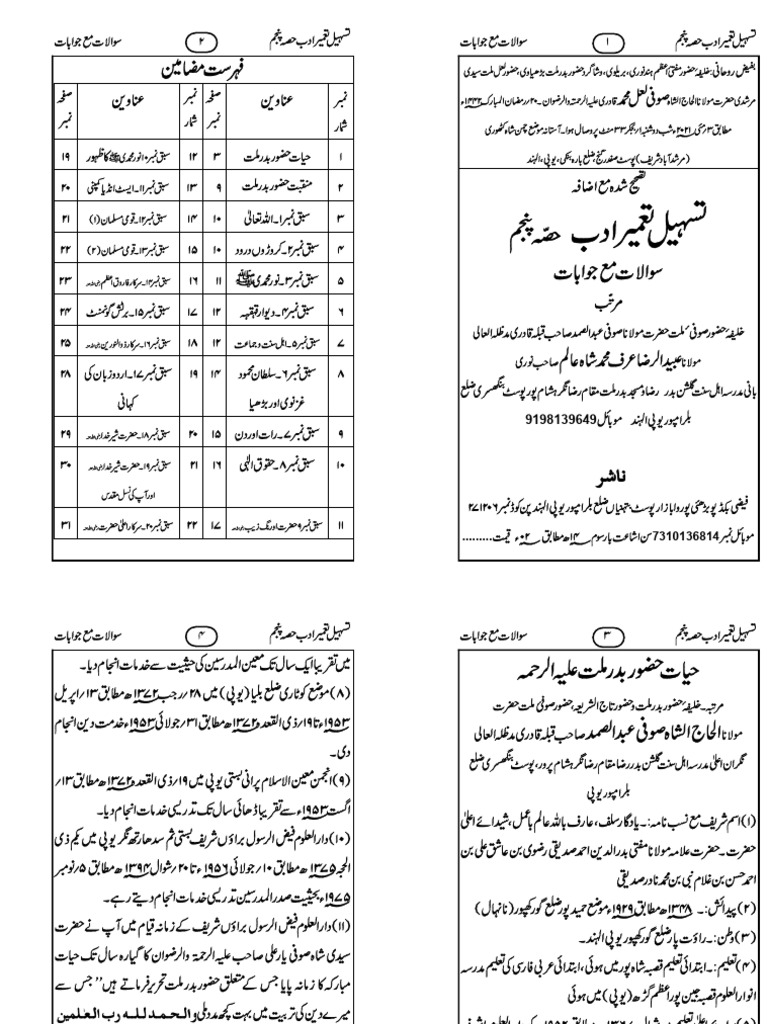 تسہیل تعمیر ادب حصہ پنجم ۱ سوالات مع جوابات
بفیض روحانی: خلیفۂ حضور مفتی اعظم ہند نوری، بریلوی، وشاگرد حضور بدر ملت بڑھیاوی، حضور لعل ملت سیدی
مرشدی حضرت مولانا الحاج الشاہ صوفی لعل محمد قادری علیہ الرحمۃ والرضوان۔ ۲۰؍رمضان المبارک ۱۴۴۲ھ
مطابق ۳؍مئی ۲۰۲۱ء شب دوشنبہ ۱؍بجکر ۳۳ منٹ پر وصال ہوا۔ آستانہ موضع چمن شاہ کٹھوری
(مرشد آباد شریف) پوسٹ صفدر گنج، ضلع بارہ بنکی، یو پی، الہند
تصحیح شدہ مع اضافہ
تسہیل تعمیر ادب حصّہ پنجم
سوالات مع جوابات
مرتب
خلیفۂ حضور صوفیٔ ملت حضرت مولانا صوفی عبد الصمد صاحب قبلہ قادری مدظلہ العالی
مولانا عبید الرضا عرف محمد شاہ عالم صاحب نوری
بانی مدرسہ اہل سنت گلشن بدر رضا و مسجد بدر ملت مقام رضا نگر ہشام پور پوسٹ بنگھسری ضلع
بلرامپور یو پی الہند موبائل 9198139649
ناشر
فیضی بکڈپو بڑھنی پوروا بازار پوسٹ بتھنیاں ضلع بلرامپور یو پی الہند پن کوڈ نمبر ۲۷۱۲۰۶
موبائل نمبر 7310136814 سن اشاعت بار سوم ۱۴ھ مطابق ۲۰ء قیمت.........
تسہیل تعمیر ادب حصہ پنجم ۲ سوالات مع جوابات
فہرست مضامین
نمبر شمار عناوین صفحہ نمبر نمبر شمار عناوین صفحہ نمبر
۱ حیات حضور بدر ملت ۳ ۱۲ سبق نمبر ۱۰ نور محمدی ﷺ کا ظہور ۱۹
۲ منقبت حضور بدر ملت ۹ ۱۳ سبق نمبر ۱۱۔ ایسٹ انڈیا کمپنی ۲۰
۳ سبق نمبر ۱۔ اللہ تعالیٰ ۱۰ ۱۴ سبق نمبر ۱۲۔ قومی مسلمان (۱) ۲۱
۴ سبق نمبر ۲۔ کروڑوں درود ۱۰ ۱۵ سبق نمبر ۱۳۔ قومی مسلمان (۲) ۲۲
۵ سبق نمبر ۳۔ نور محمدی ﷺ ۱۱ ۱۶ سبق نمبر ۱۴۔ سرکار فاروق اعظم ۲۳
۶ سبق نمبر ۴۔ دیوار قہقہہ ۱۲ ۱۷ سبق نمبر ۱۵۔ برٹش گورنمنٹ ۲۴
۷ سبق نمبر ۵۔ اہل سنت و جماعت ۱۲ ۱۸ سبق نمبر ۱۶۔ سرکار ذوالنورین ۲۵
۸ سبق نمبر ۶۔ سلطان محمود ۱۴ ۱۹ سبق نمبر ۱۷۔ اردو زبان کی ۲۸
غزنوی اور بڑھیا کہانی
۹ سبق نمبر ۷۔ رات اور دن ۱۵ ۲۰ سبق نمبر ۱۸۔ حضرت شیر خدا ۲۹
۱۰ سبق نمبر ۸۔ حقوق الٰہی ۱۶ ۲۱ سبق نمبر ۱۹۔ حضرت شیر خدا ۳۰
اور آپ کی نسل مقدس
۱۱ سبق نمبر ۹ حضرت اورنگ زیب ۱۷ ۲۲ سبق نمبر ۲۰۔ سرکار اعلیٰ حضرت ۳۱
تسہیل تعمیر ادب حصہ پنجم ۳ سوالات مع جوابات
حیات حضور بدر ملت علیہ الرحمہ
مرتبہ۔ خلیفۂ حضور بدر ملت و حضور تاج الشریعہ حضور صوفی ملت حضرت
مولانا الحاج الشاہ صوفی عبد الصمد صاحب قبلہ قادری مدظلہ العالی
نگران اعلیٰ مدرسہ اہل سنت گلشن بدر رضا مقام رضا نگر ہشام پرور، پوسٹ بنگھسری ضلع
بلرامپور یو پی
(۱) اسم شریف مع نسب نامہ:۔ یادگار سلف، عارف باللہ عالم باعمل، شیدائے اعلیٰ
حضرت۔ حضرت علامہ مولانا مفتی بدر الدین احمد صدیقی رضوی بن عاشق علی بن
احمد حسن بن غلام نبی بن محمد نادر صدیقی
(۲) پیدائش:۔ ۱۳۴۸ھ مطابق ۱۹۲۹ء موضع حمید پور ضلع گورکھپور (نانہال)
(۳) وطن:۔ راؤت پار ضلع گورکھپور یو پی الہند۔
(۴) تعلیم:۔ ابتدائی تعلیم قصبہ شاہ پور میں ہوئی، ابتدائی عربی فارسی کی تعلیم مدرسہ
انوار العلوم قصبہ جین پور اعظم گڑھ (یو پی) میں ہوئی
تسہیل تعمیر ادب حصہ پنجم ۴ سوالات مع جوابات
میں تقریباً ایک سال تک معین المدرسین کی حیثیت سے خدمات انجام دیا۔
(۸) موضع کوٹاری ضلع بلیا (یو پی) میں ۲۸؍رجب ۱۳۷۲ھ مطابق ۱۳؍اپریل
۱۹۵۳ء تا ۱۹؍ذی القعدہ ۱۳۷۲ھ مطابق ۳۱؍جولائی ۱۹۵۳ء خدمت دین انجام
دی۔
(۹) انجمن معین الاسلام پرانی بستی یو پی میں ۱۹؍ذی القعدہ ۱۳۷۲ھ مطابق ۱۳؍
اگست ۱۹۵۳ء سے تقریباً ڈھائی سال تک تدریسی خدمات انجام دیا۔
(۱۰) دار العلوم فیض الرسول براؤں شریف بستی ثم سدھارتھ نگر یو پی میں یکم ذی
الحجہ ۱۳۷۵ھ مطابق ۱۰؍جولائی ۱۹۵۶ء تا ۲۰؍شوال ۱۳۹۴ھ مطابق ۵؍نومبر
۱۹۷۵ء بحیثیت صدر المدرسین تدریسی خدمات انجام دیتے رہے۔
(۱۱) دار العلوم فیض الرسول براؤں شریف کے زمانہ قیام میں آپ نے حضرت
سیدی شاہ صوفی یار علی صاحب علیہ الرحمۃ والرضوان کا گیارہ سال تک حیات
مبارکہ کا زمانہ پایا جس کے متعلق حضور بدر ملت تحریر فرماتے ہیں ”جس سے
میرے دین کی تربیت میں بہت کچھ مدد ملی والحمد للہ رب العلمین